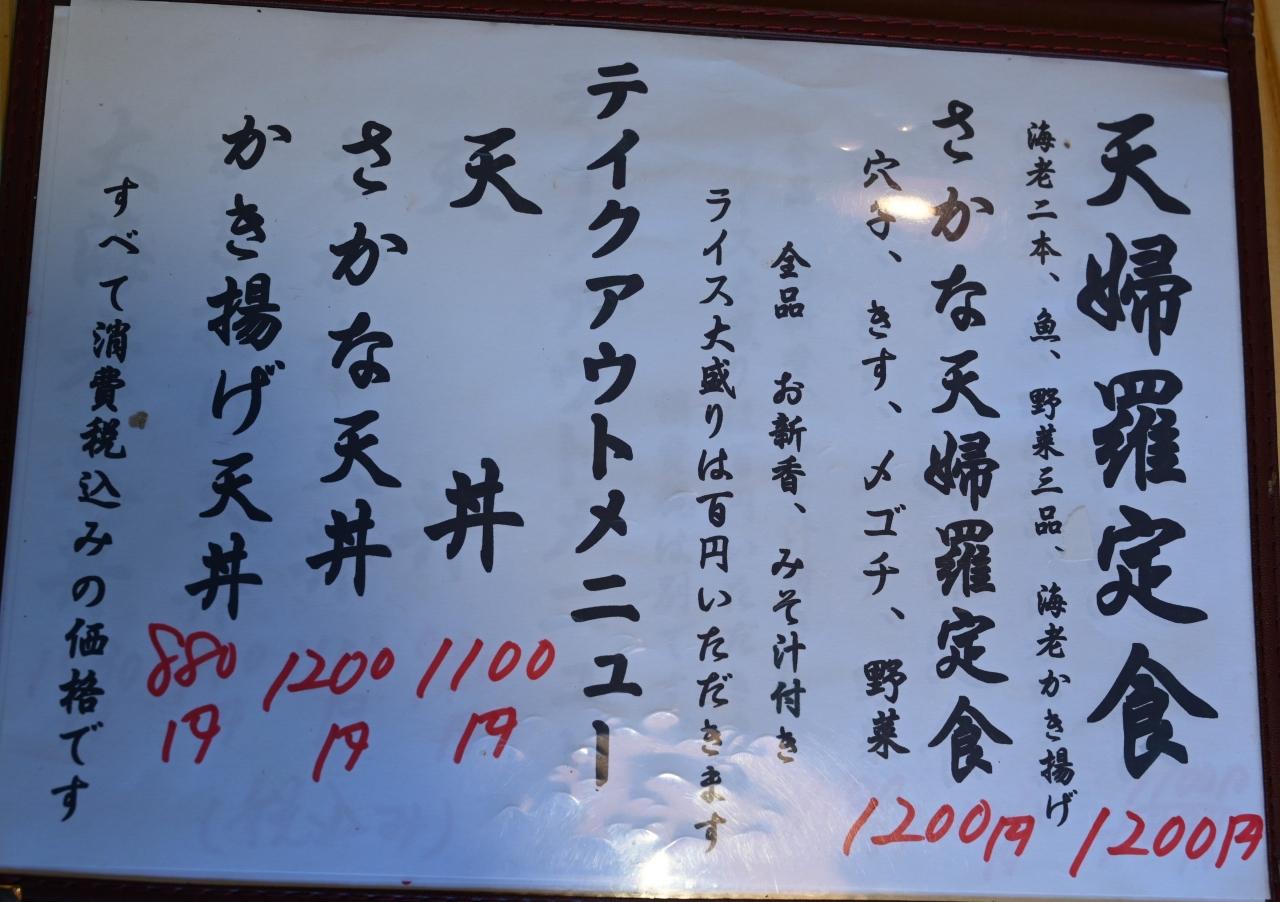 天婦羅定食 1200円
海老二本、魚、野菜三品、海老かき揚げ
さかな天婦羅定食 1200円
穴子、きす、メゴチ、野菜
全品 お新香、みそ汁付き
ライス大盛りは百円いただきます
テイクアウトメニュー
天丼 1100円
さかな天丼 1200円
かき揚げ天丼 880円
すべて消費税込みの価格です